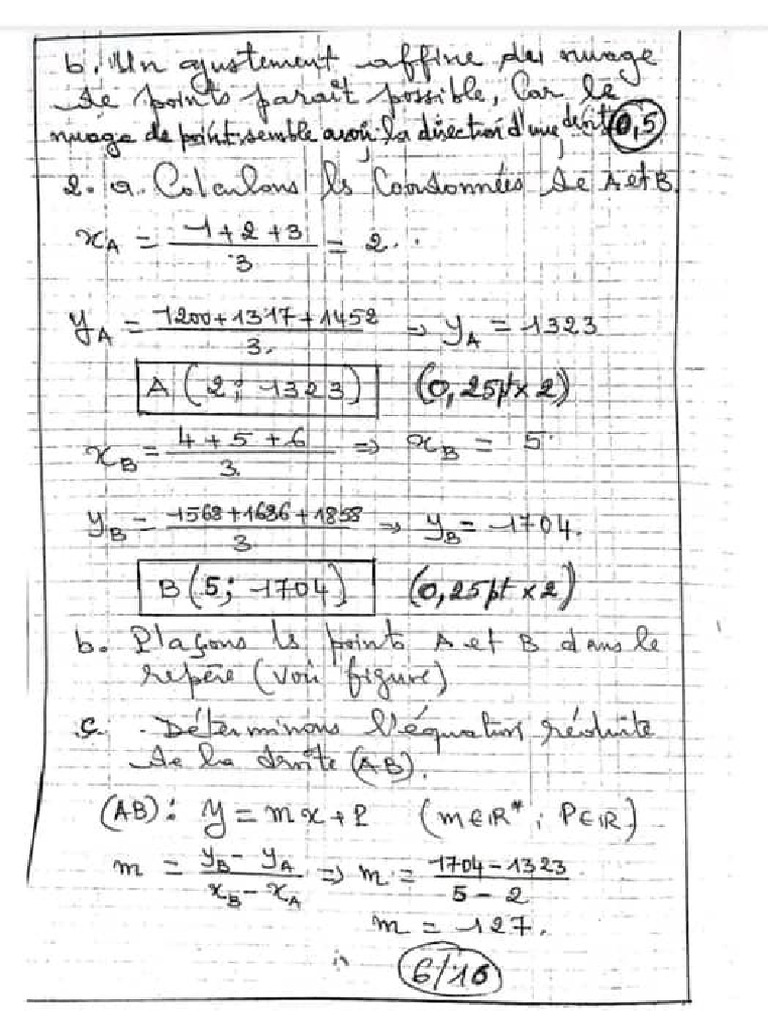 b. Un ajustement affine du nuage
de points parait possible, Car le
nuage de point semble avoir la direction d'une droite 0,5
2. a. Calculons les Coordonnées de A et B.
x_A = (1+2+3)/3 = 2.
y_A = (1200+1317+1452)/3 ⇒ y_A = 1323
A (2; 1323) (0,25pt x 2)
x_B = (4+5+6)/3 ⇒ x_B = 5
y_B = (1568+1686+1858)/3 ⇒ y_B = 1704.
B (5; 1704) (0,25pt x 2)
b. Plaçons les points A et B dans le
repère (voir figure)
c. Déterminons l'équation réduite
de la droite (AB).
(AB): y = mx + P (m∈IR*; P∈IR)
m = (y_B - y_A)/(x_B - x_A) ⇒ m = (1704-1323)/(5-2)
m = 127.
6/16